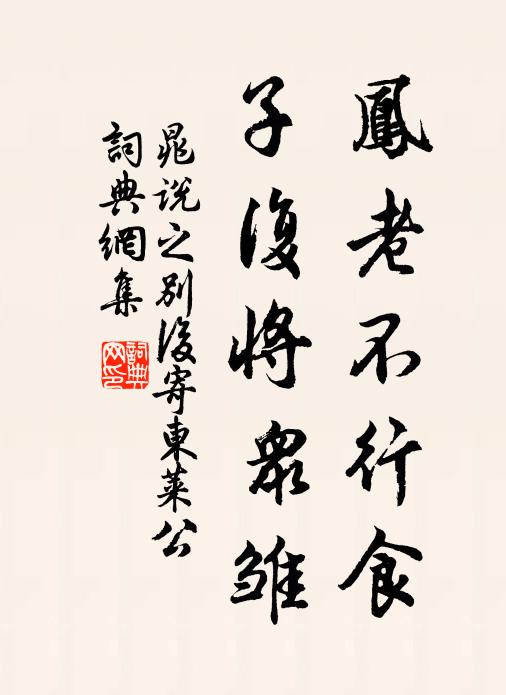 鳳老不行食
子復將眾雛
晁說之別後寄東萊公
詞典網集
詞典網印